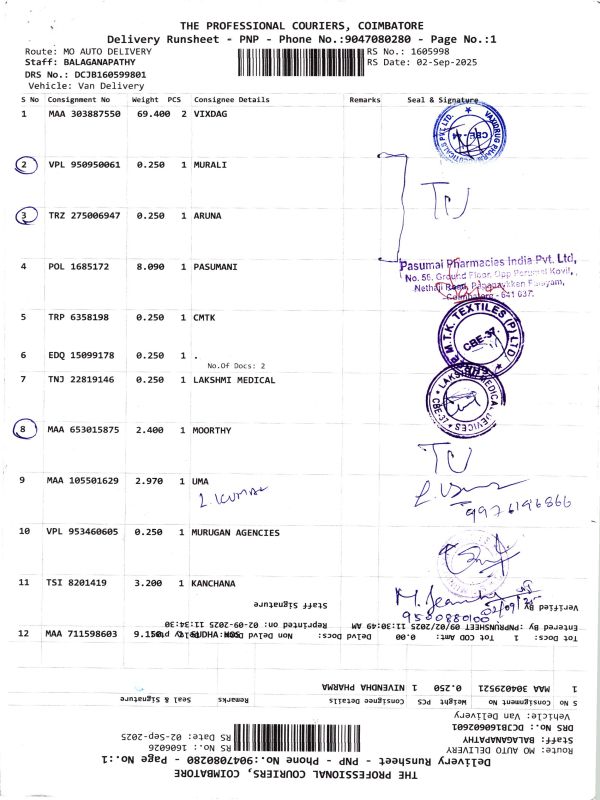 THE PROFESSIONAL COURIERS, COIMBATORE
Delivery Runsheet - PNP - Phone No.:9047080280 - Page No.:1
Route: MO AUTO DELIVERY RS No.: 1605998
Staff: BALAGANAPATHY RS Date: 02-Sep-2025
DRS No.: DCJB160599801
Vehicle: Van Delivery
S No Consignment No Weight PCS Consignee Details Remarks Seal & Signature
1 MAA 303887550 69.400 2 VIXDAG
CBE-44
2 VPL 950950061 0.250 1 MURALI
3 TRZ 275006947 0.250 1 ARUNA
4 POL 1685172 8.090 1 PASUMANI
Pasumai Pharmacies India Pvt. Ltd,
No. 56, Ground Floor, Opp Perumal Kovil,
Coimbatore - 641 637.
5 TRP 6358198 0.250 1 CMTK
M.T.K. TEXTILES (P) LTD
CBE-37.
6 EDQ 15099178 0.250 1 .
No.Of Docs: 2
7 TNJ 22819146 0.250 1 LAKSHMI MEDICAL
LAKSHMI MEDICAL DEVICES
CBE-37
8 MAA 653015875 2.400 1 MOORTHY
9 MAA 105501629 2.970 1 UMA
L. KUMAR
9976196866
10 VPL 953460605 0.250 1 MURUGAN AGENCIES
11 TSI 8201419 3.200 1 KANCHANA
9500880100
02/09/25
Verified By
Staff Signature
Entered By :PNPRUNSHEET 09/02/2025 11:30:49 AM Reprinted on: 02-09-2025 11:34:30
Tot Docs: 1 Tot COD Amt: 0.00 Delvd Docs: Non Delvd Docs:
12 MAA 711598603 9.150 SUDHA HOS
1 MAA 304029521 0.250 1 NIVENDHIA PHARMA
S No Consignment No Weight PCS Consignee Details Remarks Seal & Signature
Vehicle: Van Delivery
DRS No.: DCJB160602601
Staff: BALAGANAPATHY RS Date: 02-Sep-2025
Route: MO AUTO DELIVERY RS No.: 1606026
Delivery Runsheet - PNP - Phone No.:9047080280 - Page No.:1
THE PROFESSIONAL COURIERS, COIMBATORE